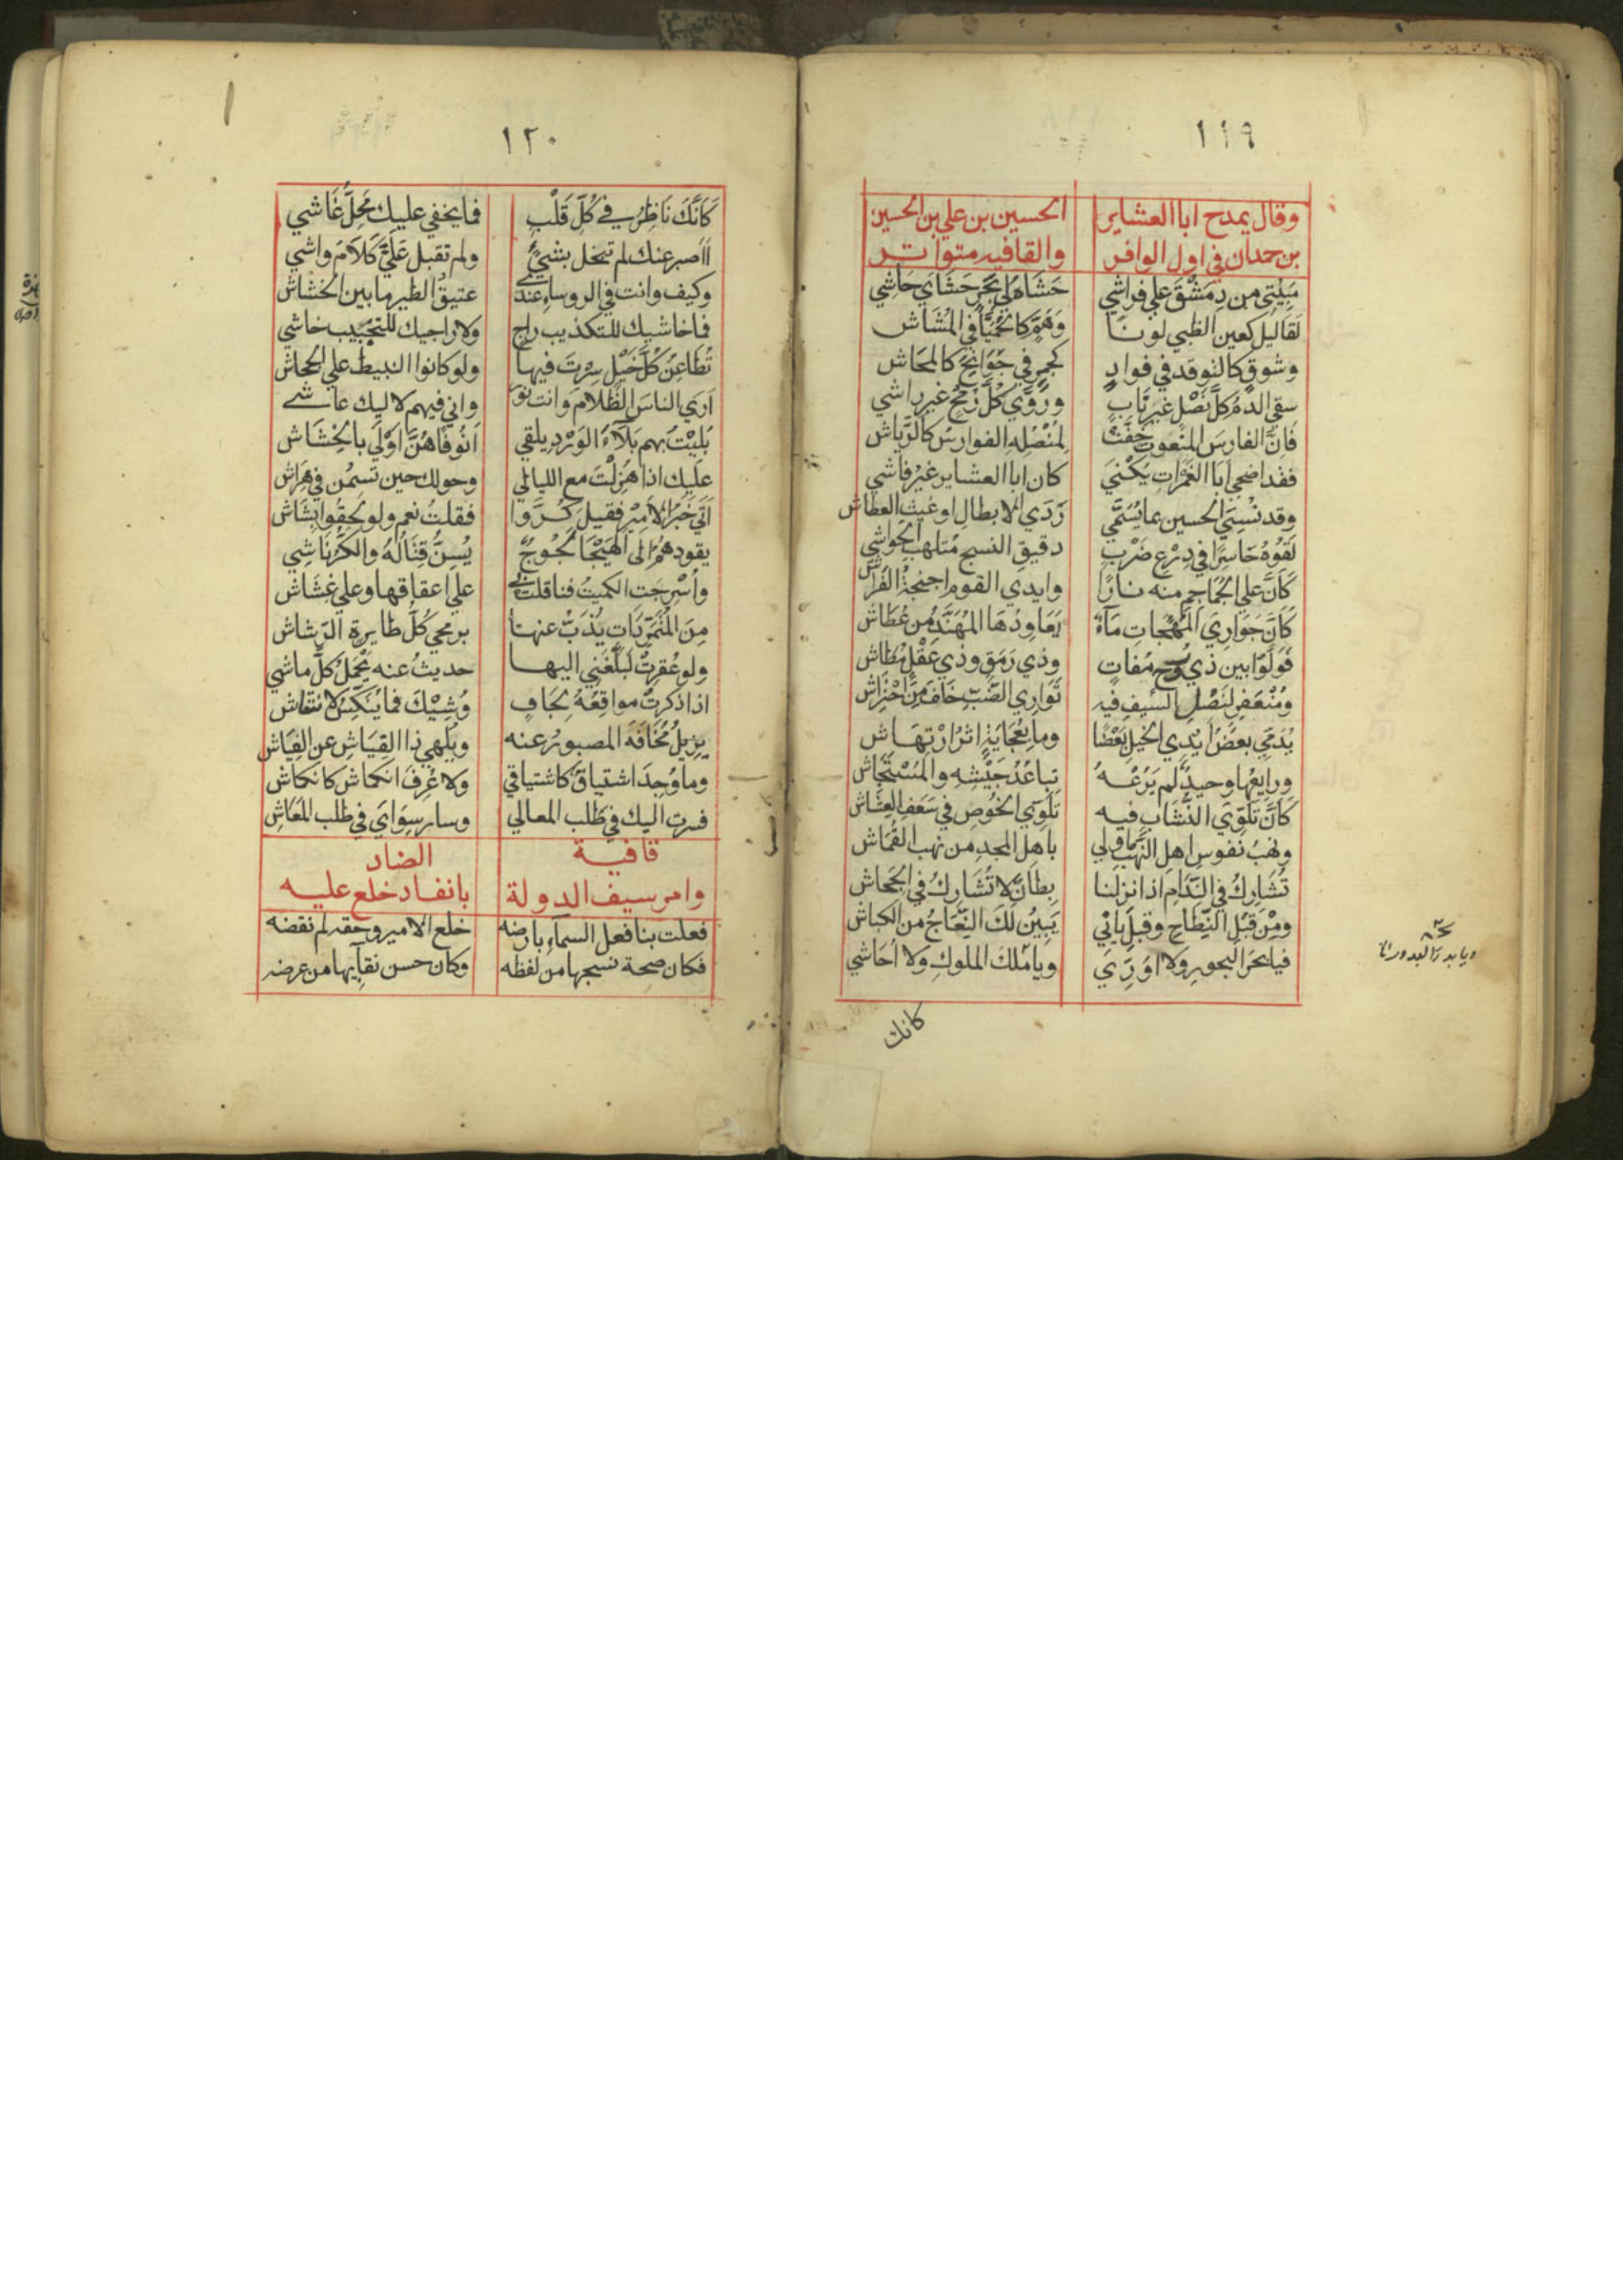 ١١٩
وقال يمدح ابا العشاير الحسين بن علي بن الحسين
بن حمدان في اول الوافر والقافيه متواتر
مَبِيْتِي من دِمَشْقَ علي فراشي حَشَاهُ لي بحَرِّ حَشَايَ حَاشي
لَقَا ليل كعين الظبي لونًا وَهَمٍّ كالحُمَيَّا في المُشَاش
وشوقٍ كالتوقد في فوادٍ كجمرٍ في جَوَانِحَ كالمحَاش
سقي الدَّمُ كلَّ نَصْلٍ غيرَ نَابٍ وروَّي كلَّ رُمْحٍ غيرِ راشي
فَاِنَّ الفارسَ المنعوتَ خَفَّتْ لِمُنْصُلِهِ الفوارسُ كالرِّيَاش
فقد اضحي ابا الغَمَراتِ يُكْنيَ كان ابا العشاير غيرُ فاشي
وقد نُسِيَ الحسين بما يُسَمَّي رَدَي الابطالِ او غيث العطاش
لَقُوهُ حَاسِرًا في دِرْعِ ضَرْبٍ دقيقِ النسج مُتلهب الحواشي
كَاَنَّ علي الجَمَاجِمِ منه نارًا وايدي القوم اجنحةُ الفَرَاش
كَاَنَّ جَوَارِيَ المُهَجَاتِ مَآءً يُعَاوِدُهَا المُهَنَّدُ من عُطَاش
فَوَلَّوْا بين ذي رُوحٍ مُفَاتٍ وذي رَمَقٍ وذي عَقْلٍ مُطَاش
ومُنْعَفِرٍ لِنَصْلِ السَّيفِ فيه تَوَارِي الضَّبِّ خَافَ مِنَ احْتِرَاش
يُدَمِّي بعضُ اَيْدِي الخيلِ بَعْضًا وما بِعُجَايَةٍ اثرُ ارْتِهَاش
ورايعُها وحيدٌ لم يَرُعْهُ تباعُدُ جَيْشِهِ والمُسْتَجَاش
كَاَنَّ تَلَوِّيَ النُّشَّابِ فيه تَلَوِّي الخُوصِ في سَعَفِ العِشَاش
ونهبُ نفوسِ اهلِ النَّهب اولي باهل المجدِ من نهب القُمَاش
تُشَارِكُ في النِّدَامِ اذا نزلنا بِطَانٌ لا تُشَارِكُ في الجِحَاش
ومِنْ قَبْلِ النِّطَاحِ وقبلِ يانِي يَبِيْنُ لكَ النِّعَاجُ من الكباش
فيا بَحرَ البحورِ ولا اوَرِّي ويا مَلكَ الملوكِ ولا اُحَاشي
ويا بدر البدور
كانك
١٢٠
كَاَنَّكَ نَاظِرٌ في كُلِّ قَلْبٍ فما يخفي عليك مَحَلُّ غَاشي
ااصبر عنك لم تبخل بشيءٍ ولم تقبل عَلَيَّ كَلَامَ واشي
وكيف وانت في الروساءِ عندي عتيقُ الطير ما بين الخشاش
فما خاشيك للتكذيب راجٍ ولا راجيك للتخييب خاشي
تُطَاعِنُ كُلُّ خَيْلٍ سِرْتَ فيها ولو كانوا النبيطَ علي الجحاش
اَرَي الناسَ الظَّلامَ وانت نُورٌ واني فيهم لاليك عاشي
بُلِيْتُ بهم بَلَآءَ الوَرْدِ يلقي اُنُوفًا هُنَّ اَوْلَي بالخِشَاش
عليك اذا هُزِلْتَ مع الليالي وحولك حين تسمُن في هِرَاش
اَتَي خَبَرُ الاَمِيرِ فقيل كَرُّوا فقلتُ نعم ولو لحِقُوا بِشَاش
يقودهمُ الي الهَيْجَا لَجُوجٌ يُسِنُّ قِتَالُهُ والكَرُّ نَاشِي
واُسْرِجَت الكميتُ فناقلت بي علي اعقاقها وعلي غِشَاش
مِنَ المُتَمَرِّدَاتِ يُذَبُّ عنها برمحي كُلُّ طايرة الرَّشاش
ولو عُقِرتْ لَبَلَّغَنِي اليها حديثٌ عنه يَحْمِلُ كلَّ ماشي
اذا ذكرت مواقِعُهُ لِحَافٍ وشِيْكَ فما يُنَكِّسُ لانتقاش
يزيلُ مُخَافَةَ المصبور عنه ويُلهي ذا الفِيَاشِ عن الفِيَاش
وما وُجِدَ اشتياقٌ كاشتياقي ولا عُرِفَ انكماش كانكماش
فسرت اليك في طلب المعالي وسار سِوَايَ في طلب المَعَاشِ
قافية الضاد
وامر سيف الدولة بانفاد خلع عليه
فعلت بنا فعل السماءِ بارضه خلع الامير وحقه لم نقضه
فكان صحة نسجها من لفظه وكان حسن نقآيها من عرضه